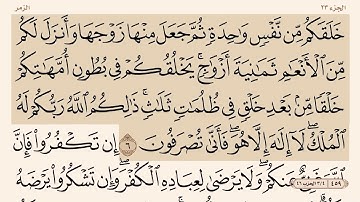 الجزء ٢٣ الزمر
خَلَقَكُم مِّن نَّفْسٍ وَٰحِدَةٍ ثُمَّ جَعَلَ مِنْهَا زَوْجَهَا وَأَنزَلَ لَكُم
مِّنَ ٱلْأَنْعَٰمِ ثَمَٰنِيَةَ أَزْوَٰجٍ ۚ يَخْلُقُكُمْ فِى بُطُونِ أُمَّهَٰتِكُمْ
خَلْقًا مِّنۢ بَعْدِ خَلْقٍ فِى ظُلُمَٰتٍ ثَلَٰثٍ ۚ ذَٰلِكُمُ ٱللَّهُ رَبُّكُمْ لَهُ
ٱلْمُلْكُ ۖ لَآ إِلَٰهَ إِلَّا هُوَ ۖ فَأَنَّىٰ تُصْرَفُونَ ٦ إِن تَكْفُرُوا۟ فَإِنَّ
ٱللَّهَ غَنِىٌّ عَنكُمْ ۖ وَلَا يَرْضَىٰ لِعِبَادِهِ ٱلْكُفْرَ ۖ وَإِن تَشْكُرُوا۟ يَرْضَهُ
٤٥٩ ٣/٤ الحزب ٤٦